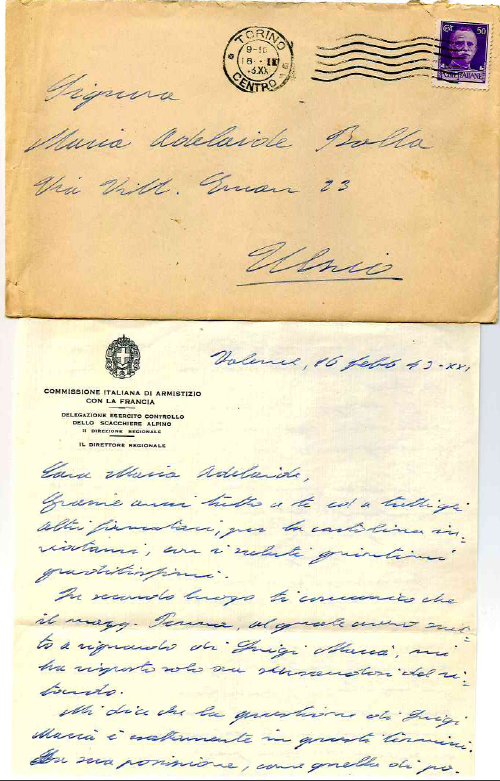 TORINO
CENTRO
9-10
50
POSTE ITALIANE
Signora
Maria Adelaide Bolla
Via Vitt. Eman 23
COMMISSIONE ITALIANA DI ARMISTIZIO
CON LA FRANCIA
DELEGAZIONE ESERCITO CONTROLLO
DELLO SCACCHIERE ALPINO
II DIREZIONE REGIONALE
IL DIRETTORE REGIONALE
Valence, 16 febb 43-XXI
Cara Maria Adelaide,
Grazie anzi tutto a te ed a tutti gli
altri per la cartolina in-
viatami, con i saluti
graditissimi.
In secondo luogo ti comunico che
il magg. al quale avevo scrit-
to a riguardo di Luigi mi
ha risposto solo scusandosi del ri-
tardo.
Mi dice che la questione di Luigi
è esattamente in questi termini.
La sua posizione, come quella di po-